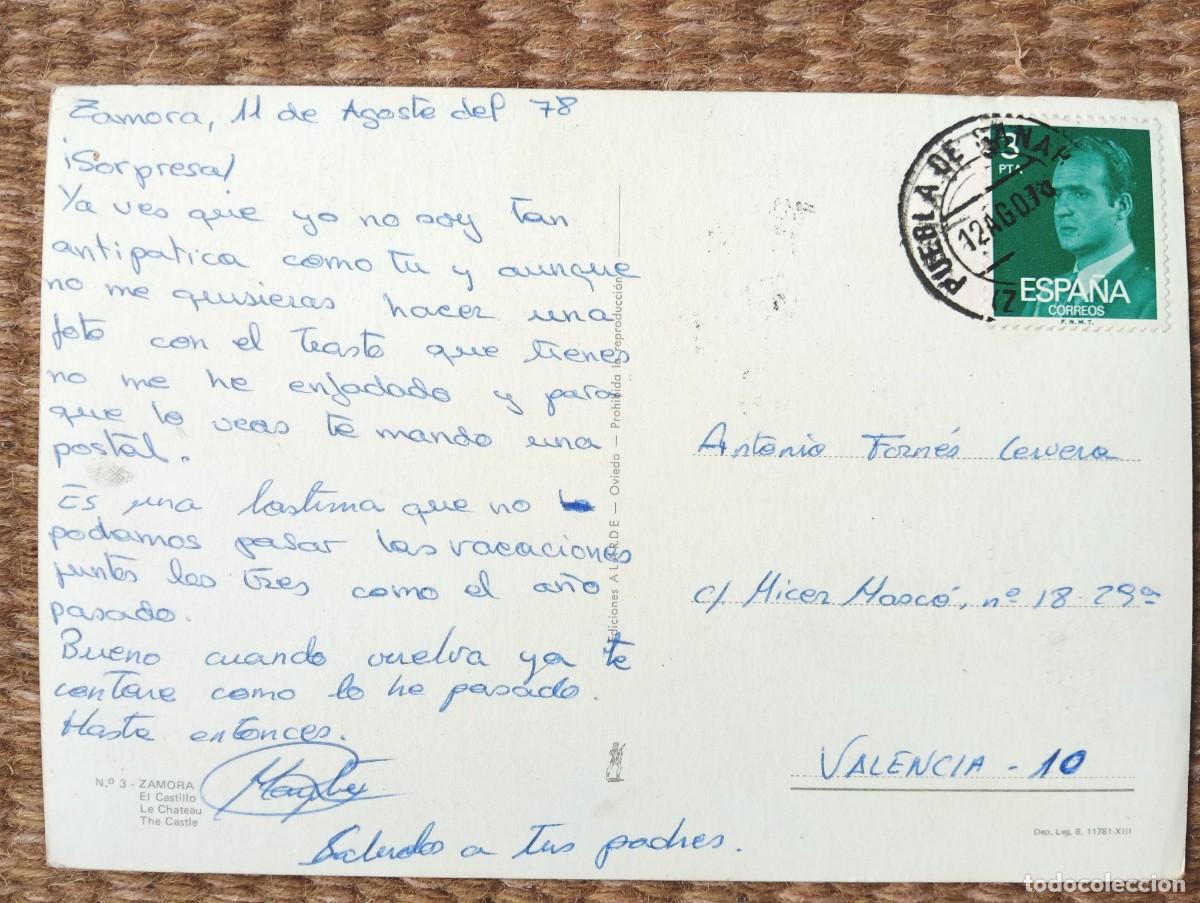 Zamora, 11 de Agosto del 78
¡Sorpresa!
Ya ves que yo no soy tan
antipatica como tu y aunque
no me quisieras hacer una
foto con el trasto que tienes
no me he enfadado y para
que lo veas te mando una
postal.
Es una lastima que no
podamos pasar las vacaciones
juntos los tres como el año
pasado.
Bueno cuando vuelva ya te
contare como lo he pasado.
Hasta entonces.
Saludos a tus padres.
N.º 3 - ZAMORA
El Castillo
Le Chateau
The Castle
Ediciones ALARDE - Oviedo - Prohibida la reproducción
PUEBLA DE SANAB
12 AGO.78
3
PTA
ESPAÑA
CORREOS
F.N.M.T.
Antonio Fornés Cervera
c/ Micer Mascó, nº 18-29ª
VALENCIA - 10
Dep. Leg. B. 11781-XIII
todocoleccion